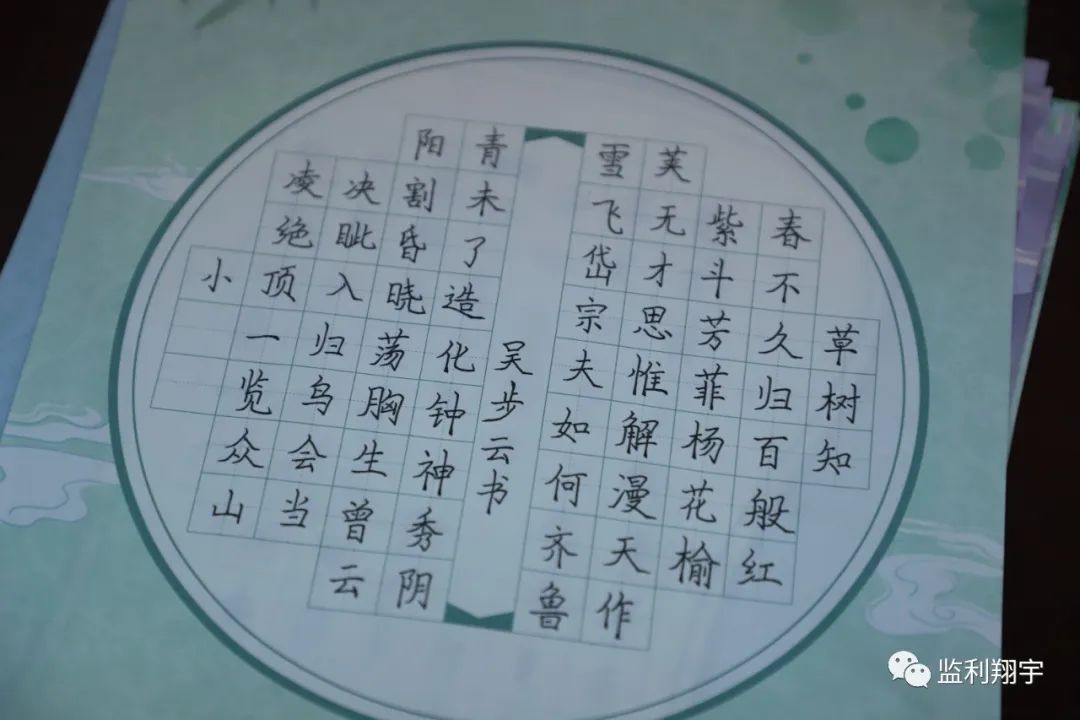 草树知
春不久归百般红
紫斗芳菲杨花榆
荚无才思惟解漫天作
雪飞岱宗夫如何齐鲁
青未了造化钟神秀阴
阳割昏晓荡胸生曾云
决眦入归鸟会当
凌绝顶一览众山
小
吴步云书
监利翔宇